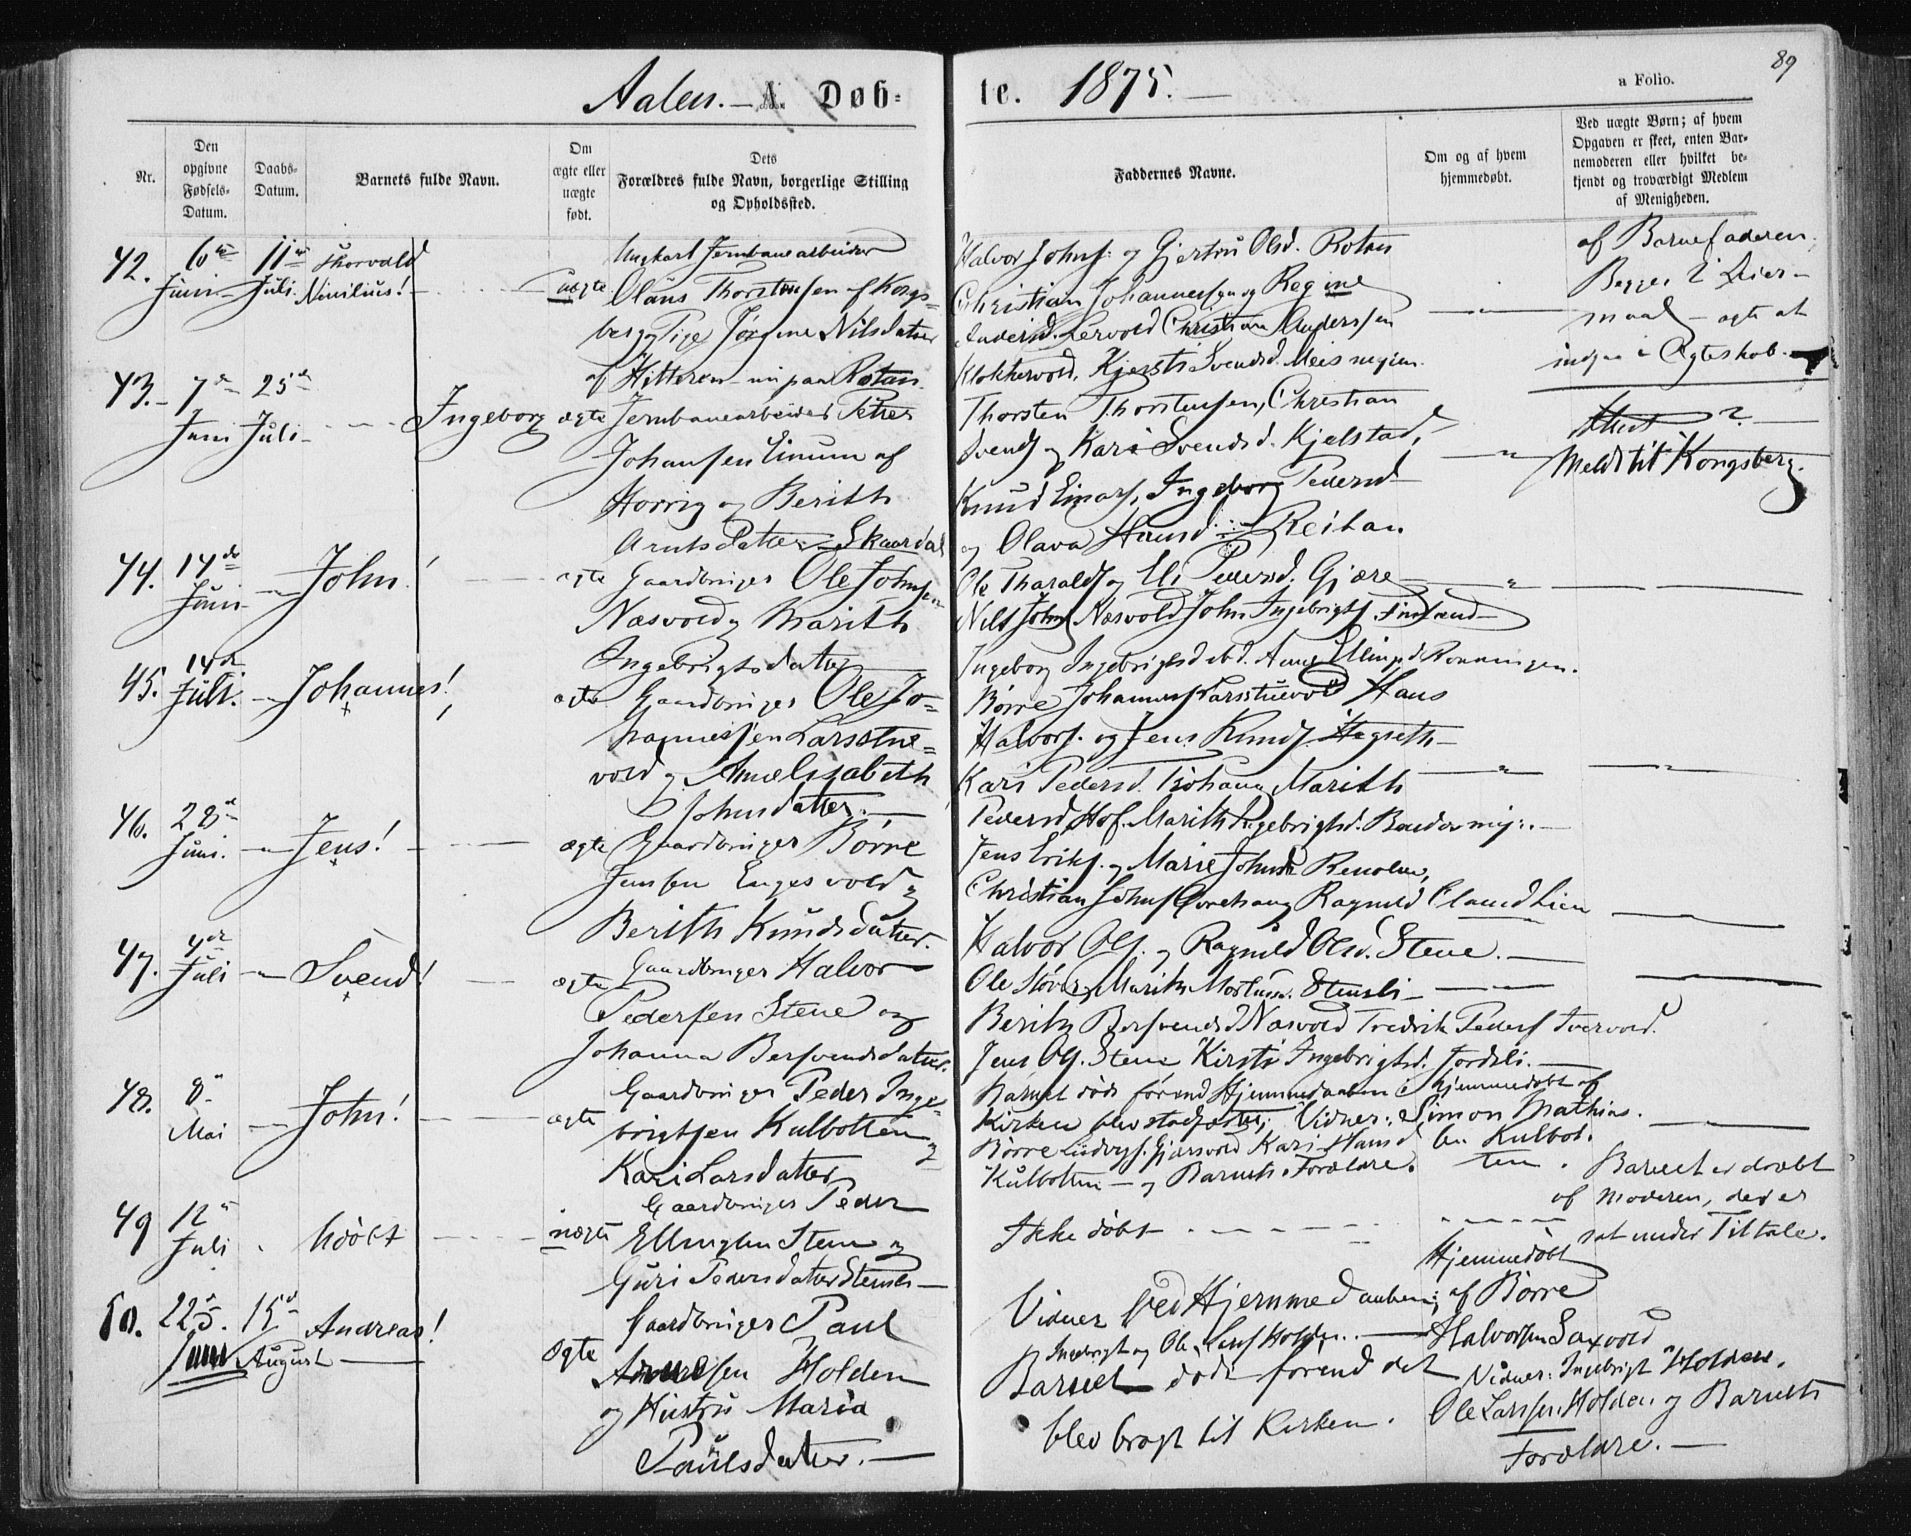 89
Aalen. — A. Døb-
te. 1875. —
a Folio.
Nr.
Den opgivne Fødsels-Datum.
Daabs-Datum.
Barnets fulde Navn.
Om ægte eller uægte født.
Dets Forældres fulde Navn, borgerlige Stilling og Opholdssted.
Faddernes Navne.
Om og af hvem hjemmedøbt.
Ved uægte Børn; af hvem Opgaven er skeet, enten Barnemoderen eller hvilket bekjendt og troværdigt Medlem af Menigheden.
42. 6te Juni 11te Juli Thorvald Ninilius! uægte
Ungkarl Jernbanearbeider
Olaus Thorstensen af Kongs-
berg og Pige Jørgine Nilsdatter
af Hitteren nu paa Rotan.
Halvor Johns. og Gjertru Olsd. Rotan
Christian Johannessen og Regine
Andersd. Lervold Christian Anderssen
Klokkervold, Kjersti Svendsd.
af Barnefaderen.
Begges 2 Leier-
maal – agte at
indgaa i Ægteskab. —
43. 7de Juni 25de Juli Ingeborg ægte
Jernbanearbeider Petter
Johansen Einum af
Horrig og Berith
Arntsdatter Skaardal
Thorsten Thorstensen, Christian
Svends. og Kari Svendsd. Kjelstad,
Knud Einars, Ingeborg Pedersd
og Olava Hansd. Reitan
Meldt til Kongsberg.
44. 14de Juni — John! ægte
Gaardbruger Ole Johnsen
Næsvold og Marith
Ingebrigtsdatter
Ole Tharalds og Eli Pedersd. Gjære
Nils Johns Næsvold John Ingebrigts.
Ingeborg Ingebrigtsd. ibd. Anne Ellingsd Rønningen.
45. 14de Juli. — Johannes! ægte
Gaardbruger Ole Jo-
hannessen Larsstue-
vold og Ane Elisabeth
Johnsdatter. —
Børre Johannes. Larsstuevold Hans
Halvors. og Jens Knuds. Hegseth —
Kari Pedersd. Marith
Pedersd Hof. Marith Ingebrigtsd.
46. 28de Juni. — Jens! ægte
Gaardbruger Børre
Jensen Engesvold og
Berith Knudsdatter.
Jens Eriks. og Marie Johnsd. Renolen,
Christian Johns Ragnild Olausd Lien
47. 4de Juli — Svend! ægte
Gaardbruger Halvor
Pedersen Stene og
Johanna Bersvendsdatter.
Halvor Ols. og Ragnild Olsd. Stene. —
Ole Marith Stensli —
Berith Bersvendsd Næsvold Fredrik Peders
Jens Ols. Stene Kirsti Ingebrigtsd.
48. 8de Mai — John! ægte
Gaardbruger Peder Inge-
brigtsen Kulbotten og
Kari Larsdatter
Barnet døde førend Hjemmedaaben i
Kirken blev stadfæstet; Vidner:
Børre Ludvigs. Gjærsvold Kari Hansd
Kulbotten — og Barnets Forældre.
Hjemmedøbt af
Simon Mathias-
sen Kulbot-
ten.
49 12te Juli. Udøbt uægte
Gaardbruger Peder
Ellingsen Stene og
Guri Pedersdatter Stensli —
Ikke døbt
Barnet er dræbt
af Moderen, der er
sat under Tiltale.
50. 22de Juni 15de August Andreas! ægte
Gaardbruger Paul
Andersen Holden
og Hustru Maria
Paulsdatter. —
Vidner ved Hjemmedaaben:
Ingebrigt og Ole Lars. Holden. —
Barnet døde førend det
blev bragt til Kirken.
Hjemmedøbt
af Børre
Halvorsen Saxvold
Vidner: Ingebrigt Holden,
Ole Larsen Holden og Barnets
Forældre. —